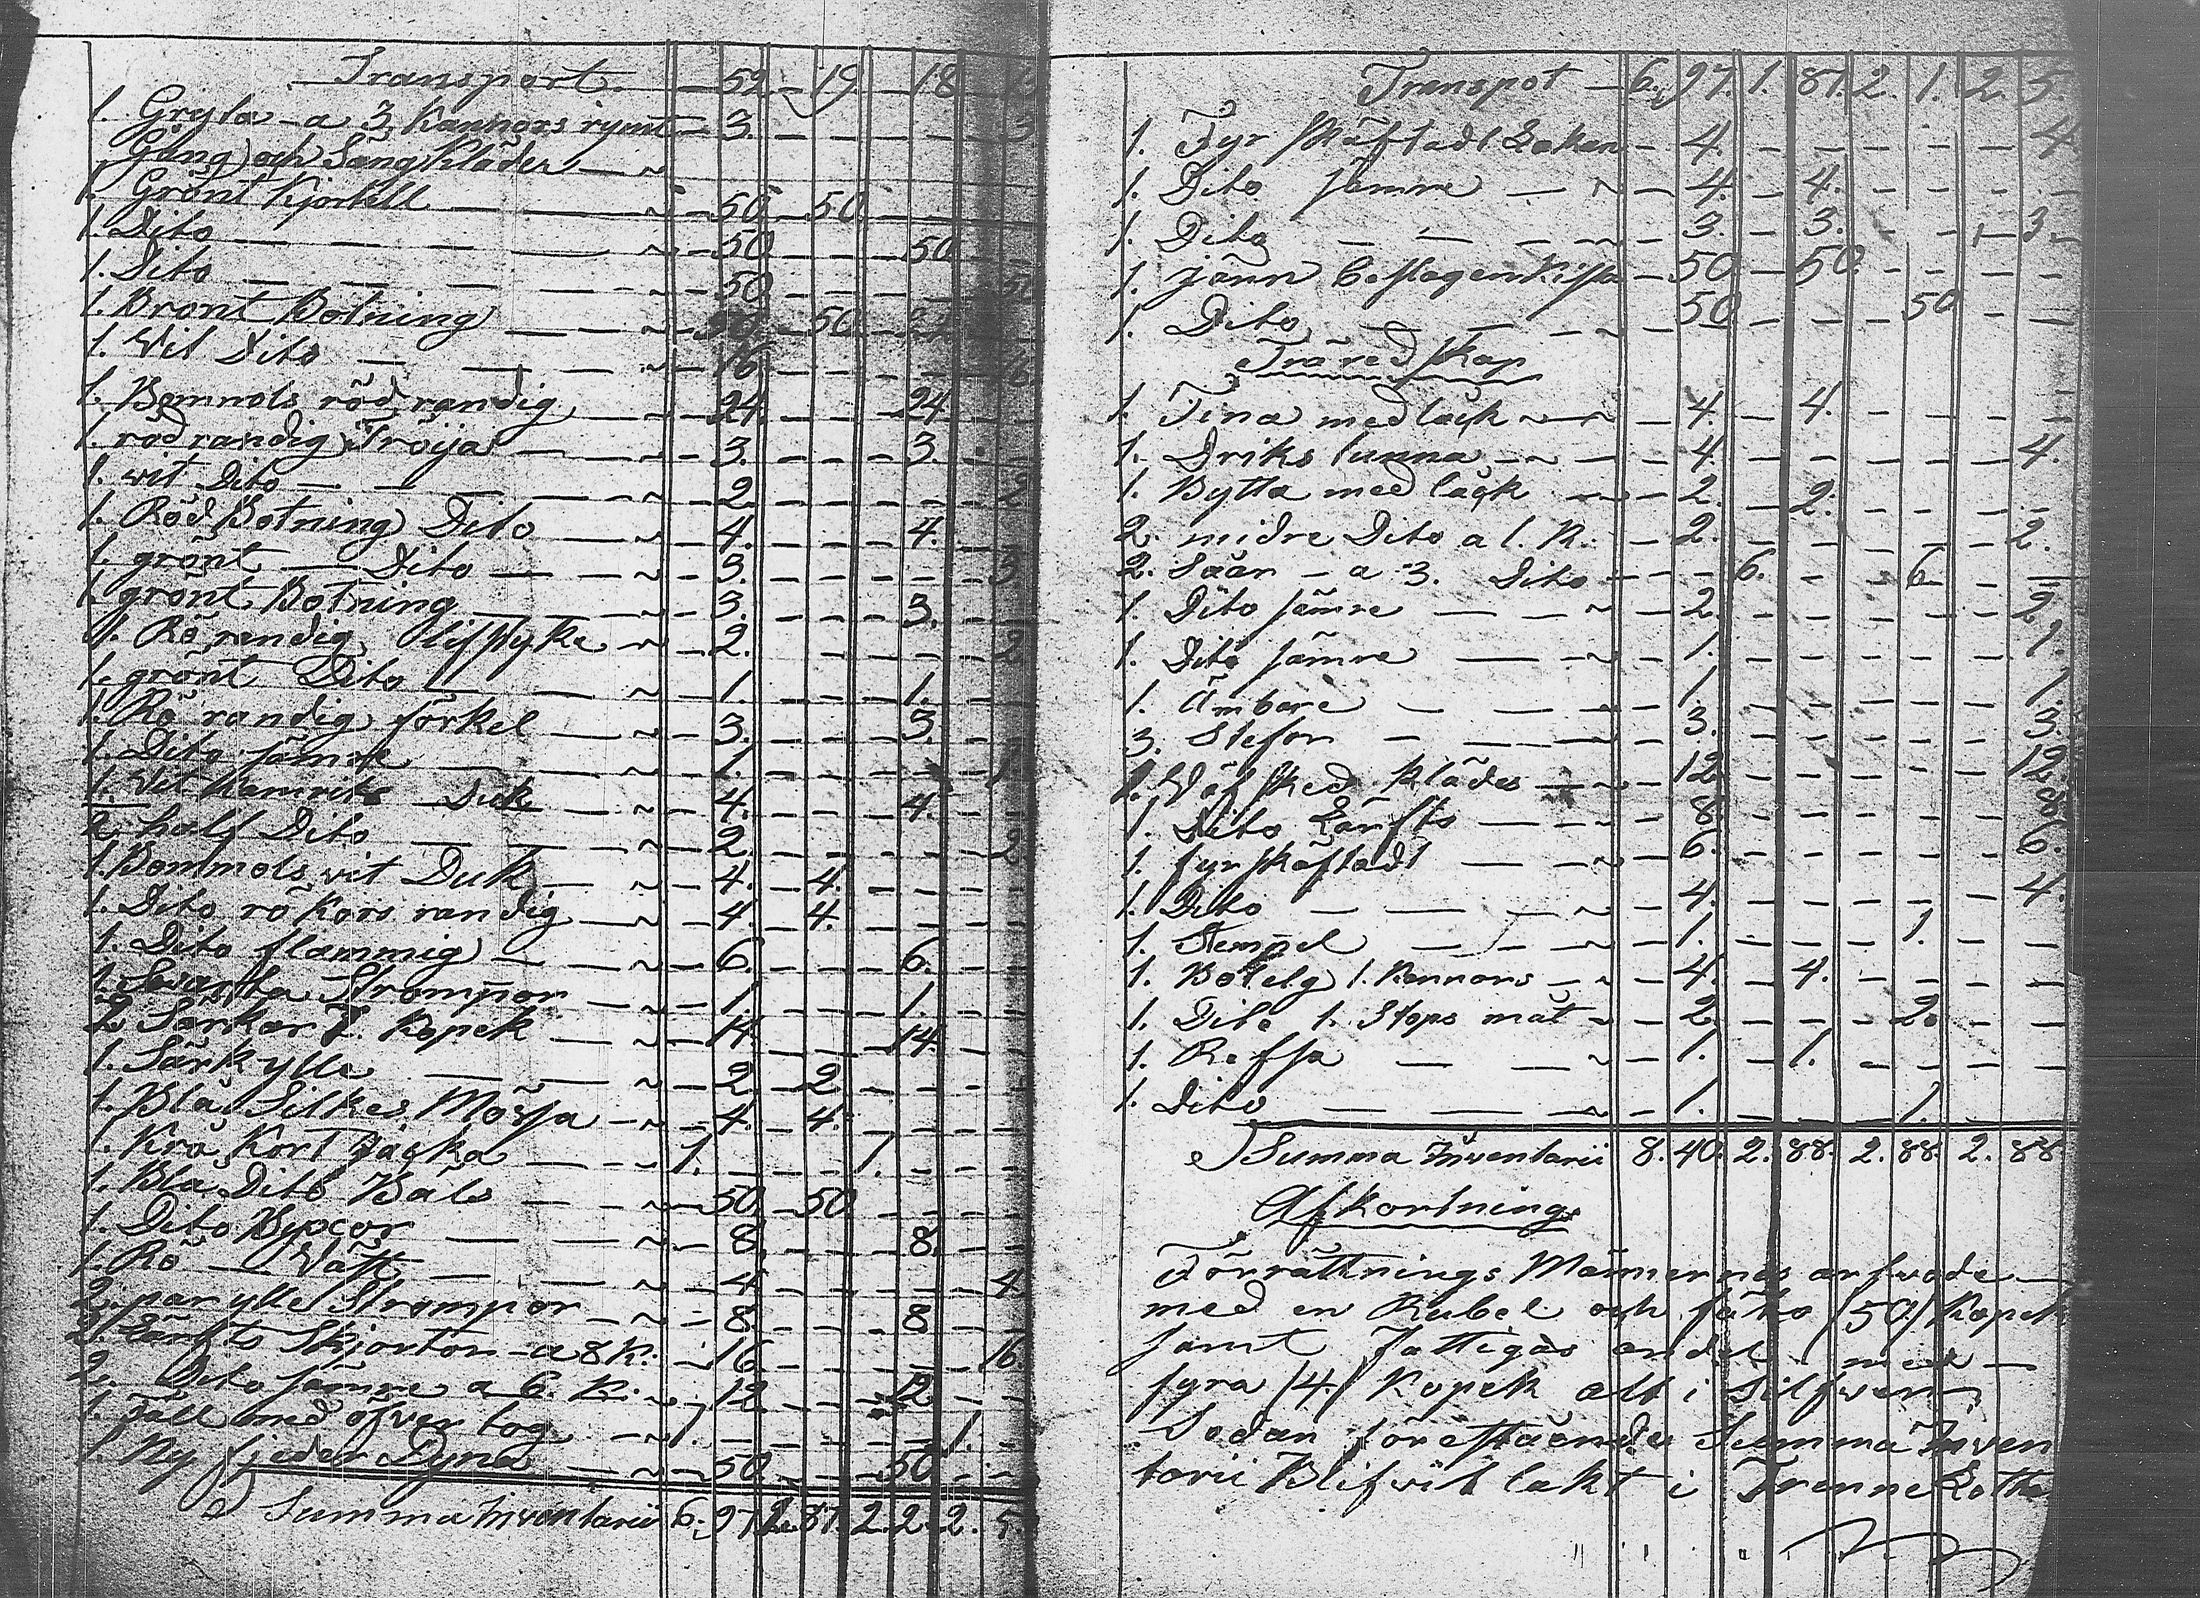 Transport — 52 — 19 — 18 — 15
1. Gryta — a 3 Kannors rymt — 3. — — — 3
Gång och Säng Kläder — ~
1. Grönt Kjortell — — — 50 — 50 — — —
1. Dito — — — — 50 — — 50
1. Dito — — — — 50 — — — 50
1. Bront Botning — — 50 — 50
1. Vit Dito — — — 16 — — — 16
1. Bomnols röd randig — 24. — — 24
1. röd randig Tröija — — 3. — — 3. —
1. wit Dito — — — 2 — — — 2
1. Röd Botning Dito — 4. — — 4. —
1. grönt — Dito — — 3. — — — 3
1. grönt Botning — — 3. — — 3. —
1. Rö randig lifstycke ~ — 2. — — — 2
1. grönt Dito — — — 1. — — 1. —
1. Rö randig förkel — — 3. — — 3. —
1. Dito sämre — — — 1. — — — 1.
1. Vit Kamriks Duk — 4. — — 4. —
2. half Dito — — — 2. — — — 2
1. Bommols vit Duk — — 4. — 4. — — —
1. Dito rö Kors randig — 4. — 4. — — —
1. Dito flammig — — 6. — — 6. —
1. Svarta Strompor — — 1. — — 1. —
2 Särkar 7. Kopek — — 14. — — 14. —
1. Särk ylle — — — 2 — 2 — — —
1. Blå Silkes Mössa — — 4. — 4. — — —
1. Krå Kort Jacka — — 1. — — 1. — —
1. Blå Dito Bals — — 50. — 50 — — —
1. Dito Byxor — — — 8. — — 8. —
1. Rö — Väst — — — 4 — — — 4
2. par ylle Strompor — — 8. — — 8. —
2. Lärfts Skjorton — a 8 K. — 16 — — — 16
2. Dito sämre a 6. K. — 12 — — 12 —
1. Fäll med öfver tog — 1. — — — 1. —
1. Ny fjeder Dyna — — 50 — — 50 — —
Summa Inventarii 6. 97 1. 87. 2. 2. 2. 5.
Transpot — 6. 97. 1. 87. 2. 1. 2. 5.
1. Fyr skäftadt Lakan — 4. — — — 4.
1. Dito sämre — ~ — 4. — 4. — — —
1. Dito — — — ~ — 3. — 3. — — 3. —
1. Jänn beslagen Kista — 50 — 50. — — —
1. Dito — — — ~ 50 — — — 50 — —
Träredskap
1. Tina med läck ~ — ~ 4. — 4. — — —
1. Driks tunna — ~ — — 4. — — — 4.
1. Bytta med läck ~ — 2. — 2. — — —
2. midre Dito a 1. K. — 2. — — — 2.
2. Säär — a 3. Dito — — — 6. — — 6. —
1. Dito sämre — — ~ — 2. — — — 2.
1. Dito sämre — — ~ 1. — — — 1.
1. Ämbare — — — — 1. — — — 1.
3. Stefor — — — — 3. — — — 3.
1. Väfsked Klädes — — 12 — — — 12.
1. Dito Lärfts — — — 8. — — — 8.
1. fyr skäftadt — — ~ — 6. — — — 6.
1. Dito — — — ~ — 4. — — — 4.
1. Stempel — — ~ — 1. — — 1. — —
1. Botelg 1. Kannors — ~ — 4. — 4. — — —
1. Dito 1. Stops mät ~ — 2. — — 2. — —
1. Refsa — — ~ — 1. — 1. — — —
1. Dito — — ~ — 1. — — 1.
Summa Inventarii 8. 40. 2. 88. 2. 88. 2. 88
Afkortning
Förrättnings Männernes arfwode —
med en Rubel och fäko /50/ Kopek
samt Fattigas andel med —
fyra /4./ Kopek alt i Silfwer,
Sedan föreståände Summa Inven
tarii Blifwit lakt i Trenne Lotter